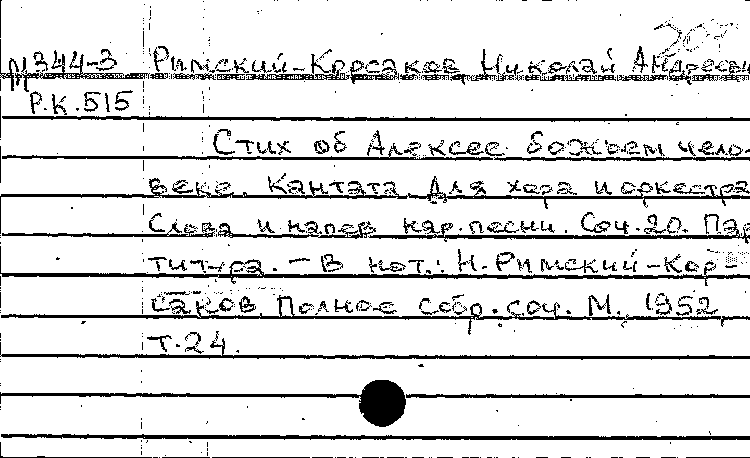 207
М344-3 Римский-Корсаков, Николай Андреевич
Р.К.515
Стих об Алексее божьем чело-
веке. Кантата. Для хора и оркестра
Слова и напев нар. песни. Соч. 20. Пар
титура. - В нот.: Н. Римский-Кор-
саков. Полное собр. соч. М., 1952,
т. 24.